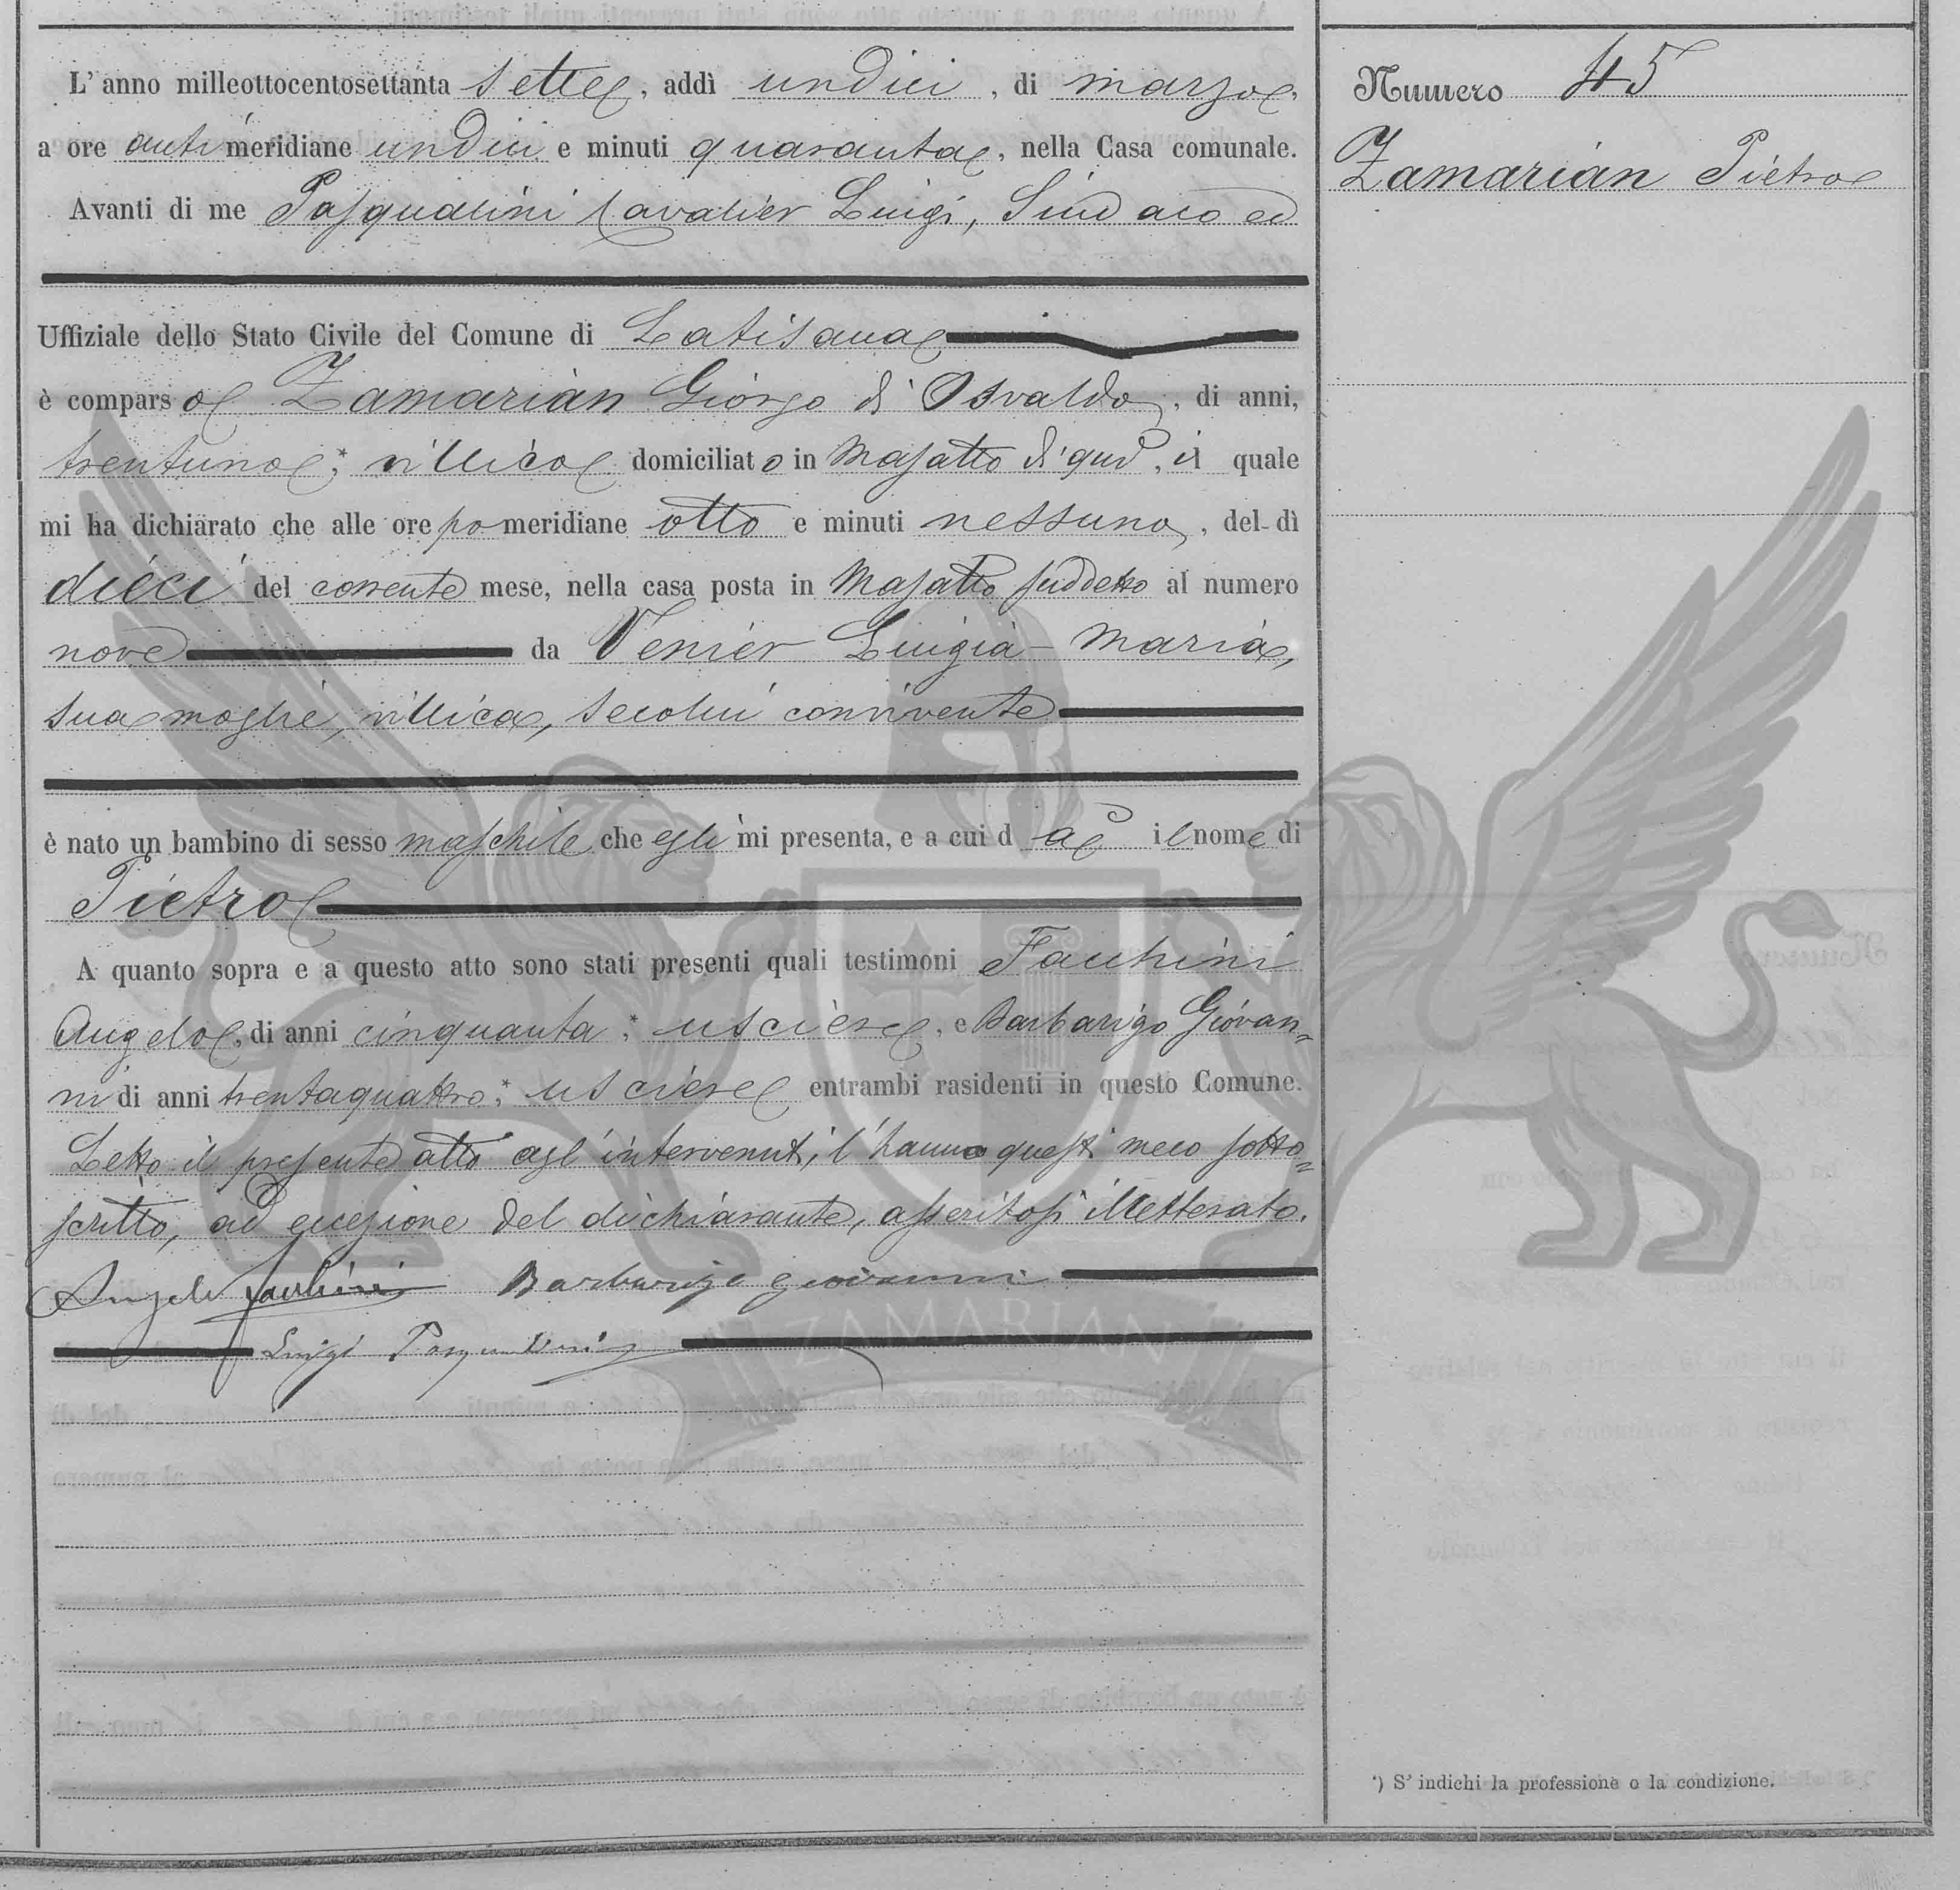 L'anno milleottocentosettanta sette, addì undici, di marzo,
a ore anti meridiane undici e minuti quaranta, nella Casa comunale.
Avanti di me Pasqualini Cavalier Luigi, Sindaco ed
Uffiziale dello Stato Civile del Comune di Latisana
è comparso Zamarian Giorgo di Osvaldo, di anni,
trentuno,* villico domiciliato in Masatto di qui, il quale
mi ha dichiarato che alle ore po meridiane otto e minuti nessuno, del dì
dieci del corrente mese, nella casa posta in Masatto suddetto al numero
nove da Venier Luigia-Maria,
sua moglie, villica, secolui convivente
è nato un bambino di sesso maschile che egli mi presenta, e a cui dà il nome di
Pietro
A quanto sopra e a questo atto sono stati presenti quali testimoni Facchini
Angelo, di anni cinquanta,* usciere, e Barbarigo Giovan=
ni di anni trentaquattro,* usciere entrambi rasidenti in questo Comune.
Letto il presente atto agl'intervenuti, l'hanno questi meco sotto=
scritto, ad eccezione del dichiarante, asseritosi illetterato.
Angelo Facchini Barbarigo Giovanni
Luigi Pasqualini
Numero 45
Zamarian Pietro
*) S'indichi la professione o la condizione.
ZAMARIAN